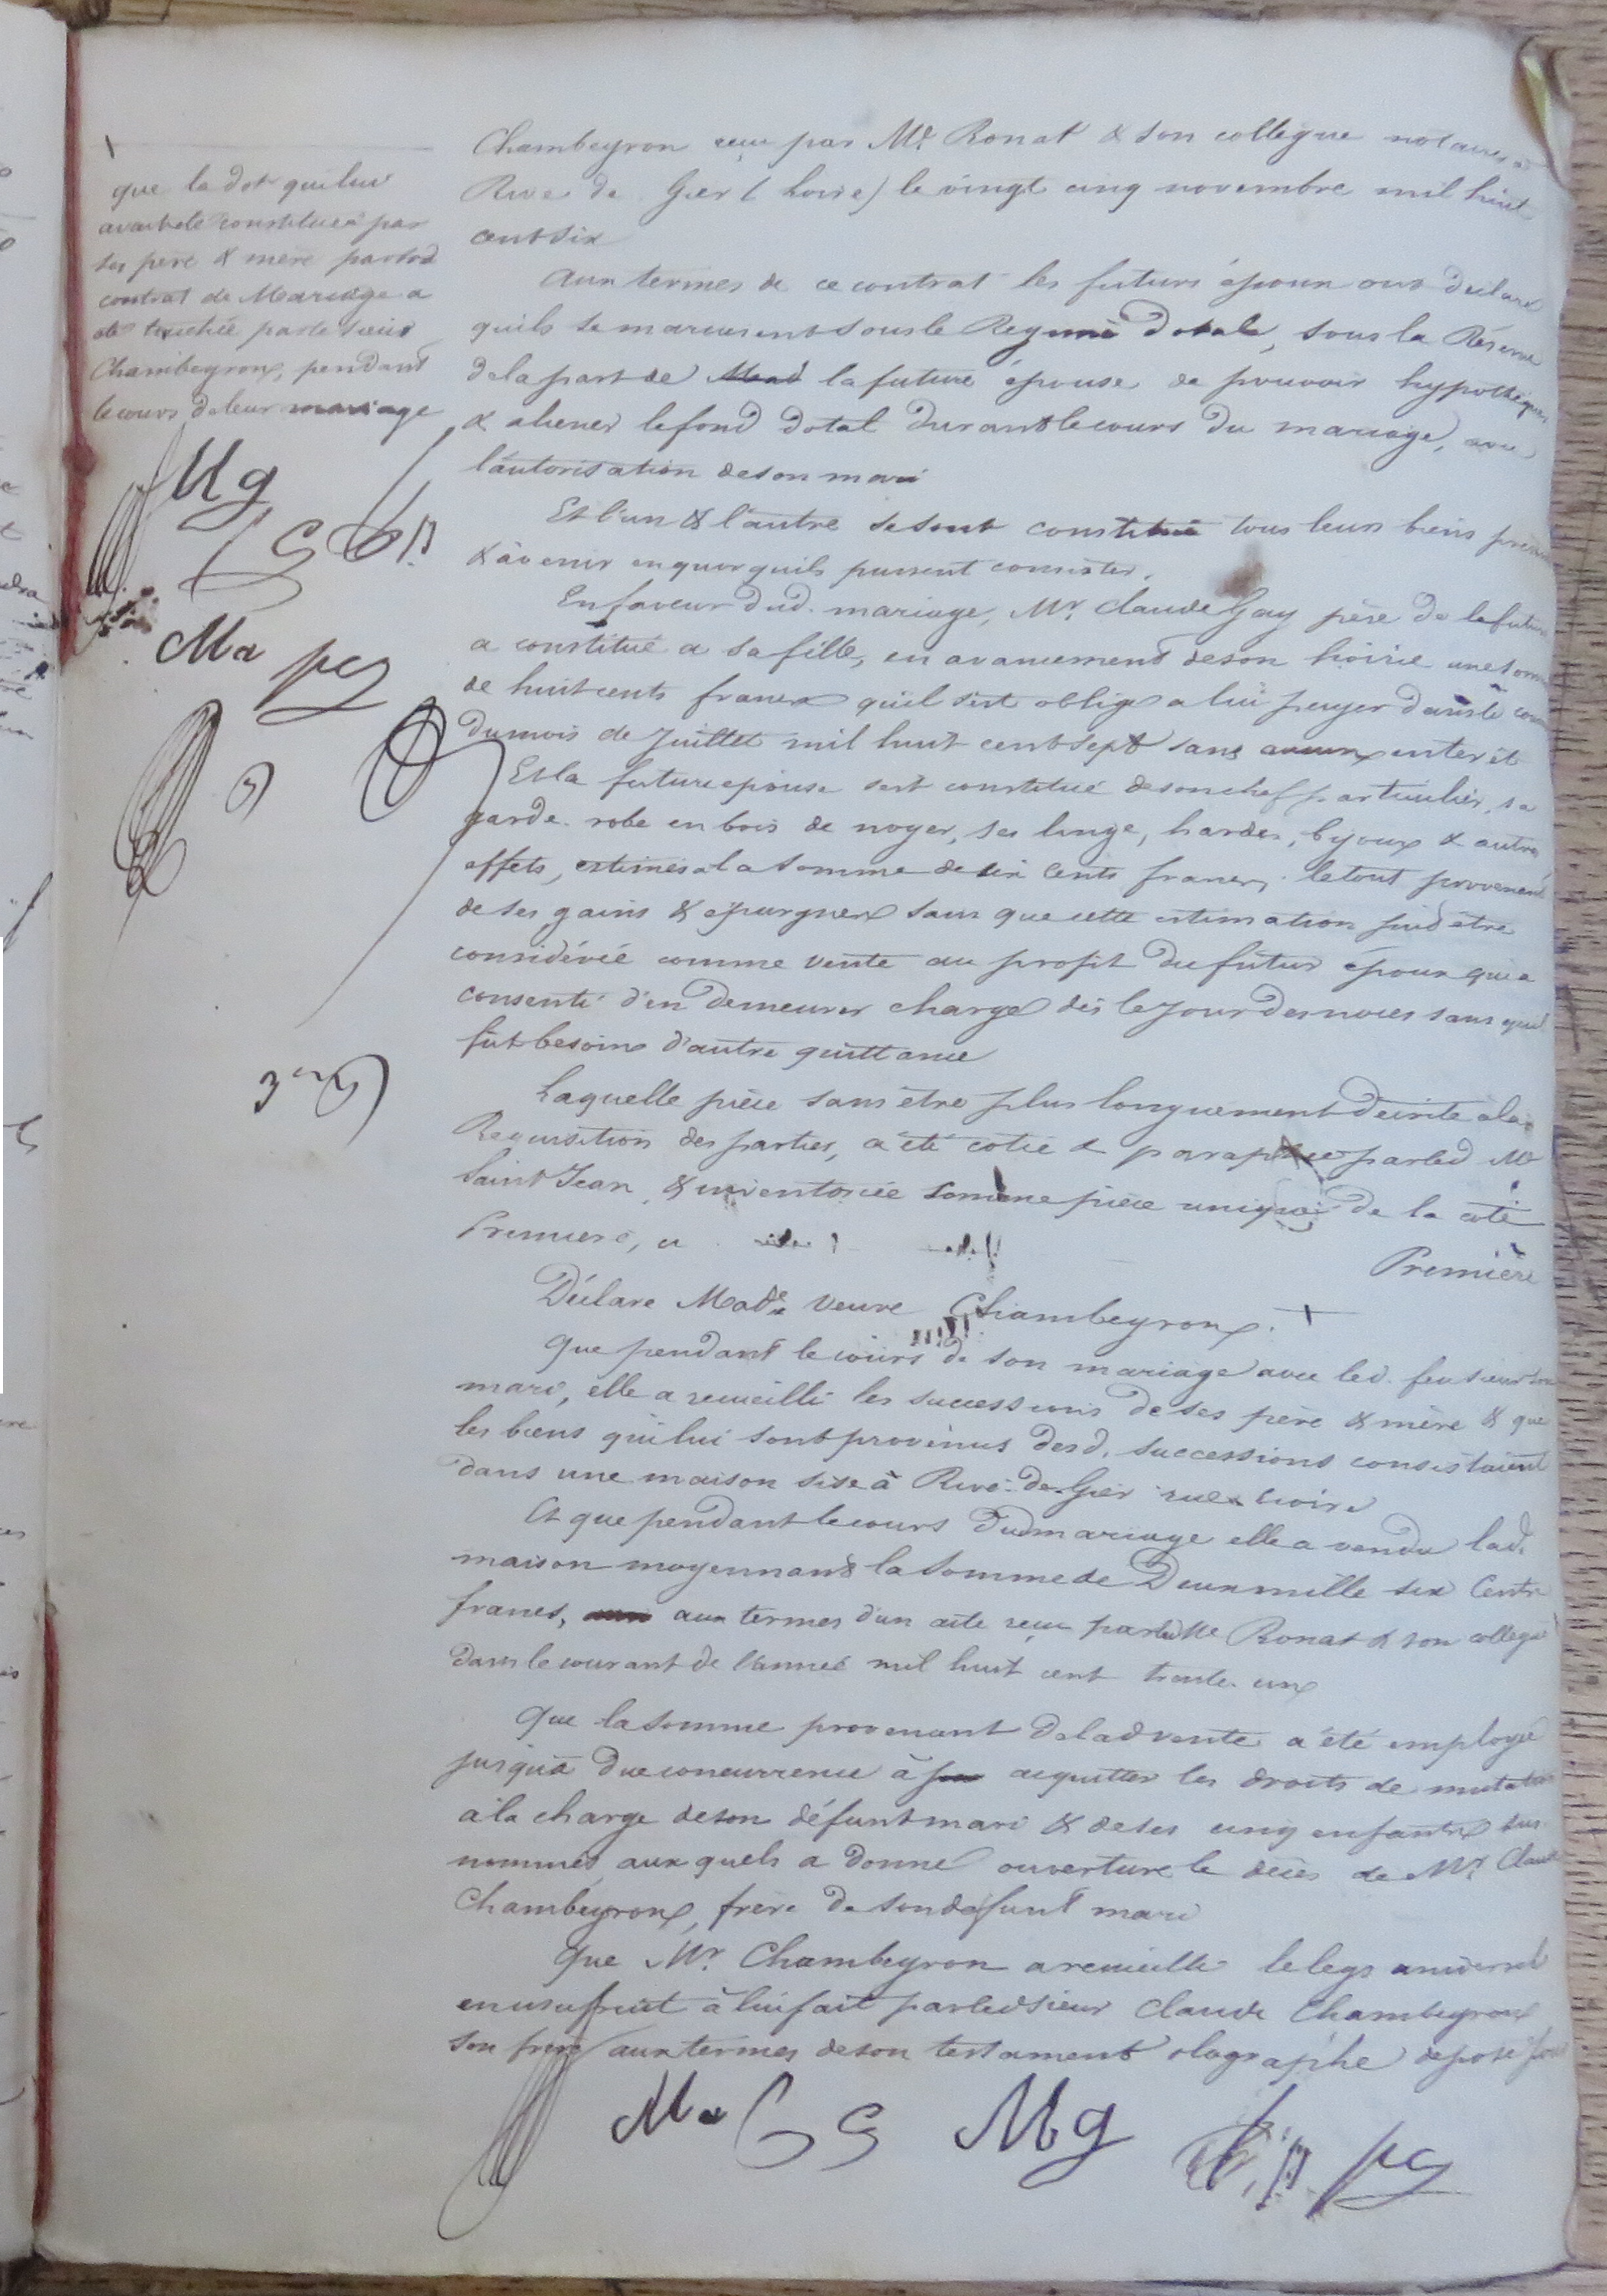 que la dot qui lui
avait été constituée par
ses père & mère par sond
contrat de Mariage a
été touchée par le sieur
Chambeyron, pendant
le cours de leur mariage
Mg
Ma pg
3
Chambeyron reçu par Me Ronat & son collegue notaires à
Rive de Gier (Loire) le vingt cinq novembre mil huit
cent six
Aux termes de ce contrat les futurs époux ont déclaré
quils se mariaient sous le Regime Dotal, sous la Réserve
de la part de la future épouse de pouvoir hypothéquer
& aliener le fond dotal durant le cours du mariage, avec
l'autorisation de son mari
Et l'un & l'autre se sont constitué tous leurs biens présens
& à venir en quoi quils pussent consister.
En faveur dud. mariage, Mr. Claude Gay père de la future
a constitué a sa fille, en avancement de son hoirie une somme
de huit cents francs quil s'est obligé a lui payer dans le cours
du mois de Juillet mil huit cent sept sans aucun interêt
Et la future épouse s'est constitué de son chef particulier, sa
garde-robe en bois de noyer, ses linge, hardes, bijoux & autres
effets, estimés a la somme de six Cents francs, le tout provenant
de ses gains & épargnes sans que cette estimation put être
considérée comme vente au profit du futur époux qui a
consenti d'en demeurer chargé dès le Jour des noces sans quil
fut besoin d'autre quittance
Laquelle pièce sans être plus longuement décrite à la
Requisition des parties, a été cotée & paraphée par led Me
Saint Jean, & inventoriée comme pièce unique de la cote
Premiere, ci
Première
Déclare Made veuve Chambeyron.
Que pendant le cours de son mariage avec led. feu sieur son
mari, elle a recueilli les successions de ses père & mère & que
les biens qui lui sont provenus desd. successions consistaient
dans une maison sise à Rive-de-Gier rue
Et que pendant le cours dud mariage elle a vendu lad.
maison moyennant la somme de Deux mille six Cents
francs, aux termes d'un acte reçu par led Me Ronat & son collegue
dans le courant de l'année mil huit cent trente un
Que la somme provenant de lad vente a été employée
jusqu'à due concurrence à acquitter les droits de mutation
à la charge de son défunt mari & de ses cinq enfants sus
nommés aux quels a donné ouverture le décès de Mr. Claude
Chambeyron, frère de son défunt mari
Que Mr. Chambeyron a recueilli le legs universel
en usufruit à lui fait par led sieur Claude Chambeyron
son frère aux termes de son testament olographe déposé
Ma Mg pg